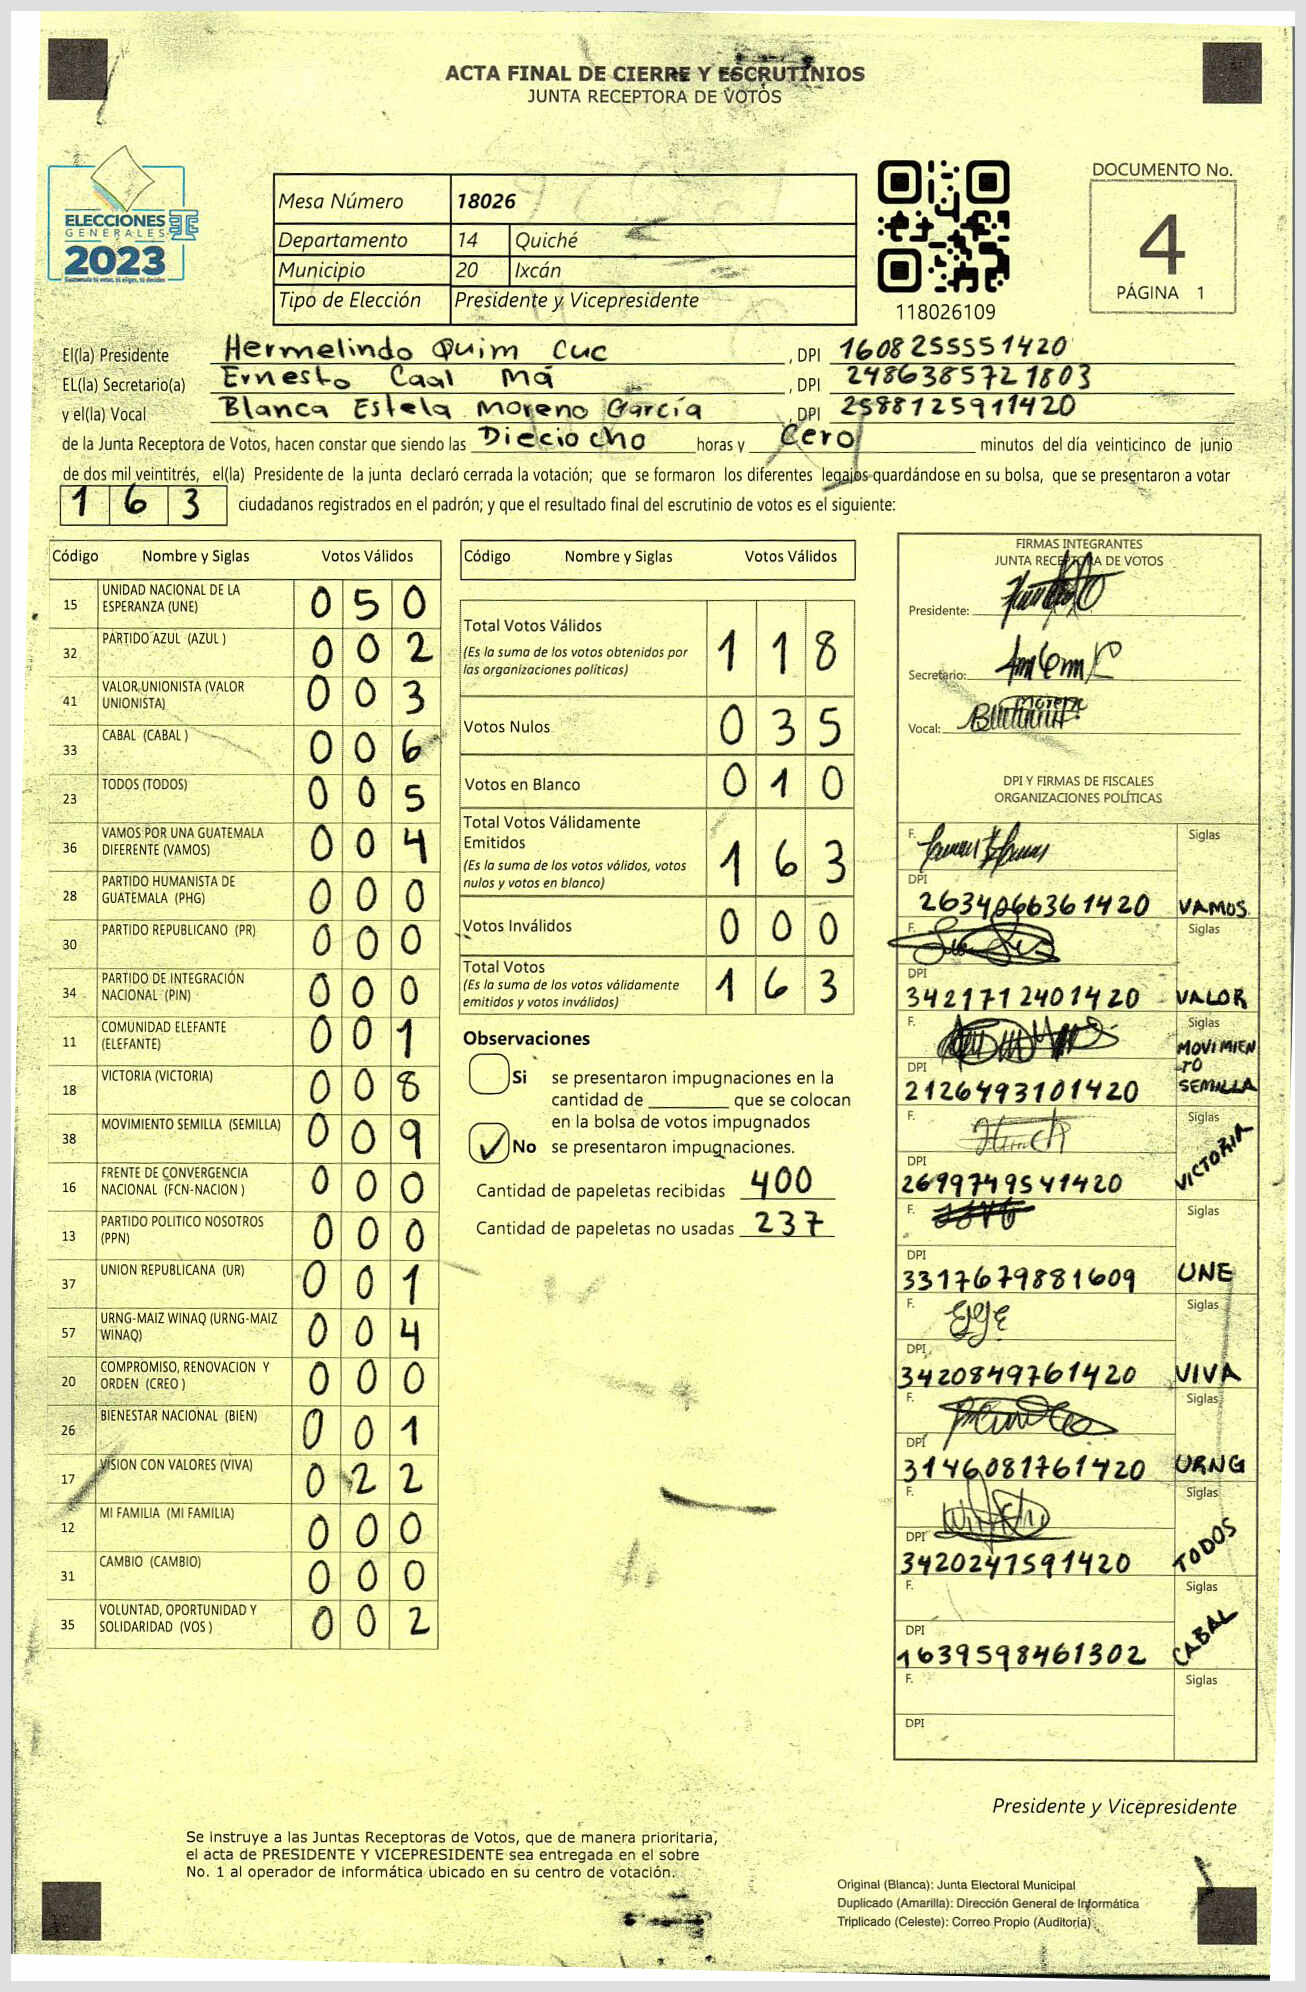 ACTA FINAL DE CIERRE Y ESCRUTINIOS
JUNTA RECEPTORA DE VOTOS
ELECCIONES
GENERALES
2023
Guatemala tú votas, tú eliges, tú decides
Mesa Número 18026
Departamento 14 Quiché
Municipio 20 Ixcán
Tipo de Elección Presidente y Vicepresidente
118026109
DOCUMENTO No.
4
PÁGINA 1
El(la) Presidente Hermelindo Quim Cuc , DPI 1608255551420
EL(la) Secretario(a) Ernesto Caal Má , DPI 2486385721803
y el(la) Vocal Blanca Estela Moreno García , DPI 2588125911420
de la Junta Receptora de Votos, hacen constar que siendo las Dieciocho horas y Cero minutos del día veinticinco de junio
de dos mil veintitrés, el(la) Presidente de la junta declaró cerrada la votación; que se formaron los diferentes legajos guardándose en su bolsa, que se presentaron a votar
163 ciudadanos registrados en el padrón; y que el resultado final del escrutinio de votos es el siguiente:
Código Nombre y Siglas Votos Válidos
15 UNIDAD NACIONAL DE LA
ESPERANZA (UNE) 050
32 PARTIDO AZUL (AZUL ) 002
41 VALOR UNIONISTA (VALOR
UNIONISTA) 003
33 CABAL (CABAL ) 006
23 TODOS (TODOS) 005
36 VAMOS POR UNA GUATEMALA
DIFERENTE (VAMOS) 004
28 PARTIDO HUMANISTA DE
GUATEMALA (PHG) 000
30 PARTIDO REPUBLICANO (PR) 000
34 PARTIDO DE INTEGRACIÓN
NACIONAL (PIN) 000
11 COMUNIDAD ELEFANTE
(ELEFANTE) 001
18 VICTORIA (VICTORIA) 008
38 MOVIMIENTO SEMILLA (SEMILLA) 009
16 FRENTE DE CONVERGENCIA
NACIONAL (FCN-NACION ) 000
13 PARTIDO POLITICO NOSOTROS
(PPN) 000
37 UNION REPUBLICANA (UR) 001
57 URNG-MAIZ WINAQ (URNG-MAIZ
WINAQ) 004
20 COMPROMISO, RENOVACION Y
ORDEN (CREO ) 000
26 BIENESTAR NACIONAL (BIEN) 001
17 VISION CON VALORES (VIVA) 022
12 MI FAMILIA (MI FAMILIA) 000
31 CAMBIO (CAMBIO) 000
35 VOLUNTAD, OPORTUNIDAD Y
SOLIDARIDAD (VOS ) 002
Código Nombre y Siglas Votos Válidos
Total Votos Válidos 118
(Es la suma de los votos obtenidos por
las organizaciones políticas)
Votos Nulos 035
Votos en Blanco 010
Total Votos Válidamente
Emitidos 163
(Es la suma de los votos válidos, votos
nulos y votos en blanco)
Votos Inválidos 000
Total Votos 163
(Es la suma de los votos válidamente
emitidos y votos inválidos)
Observaciones
Si se presentaron impugnaciones en la
cantidad de que se colocan
en la bolsa de votos impugnados
No se presentaron impugnaciones.
Cantidad de papeletas recibidas 400
Cantidad de papeletas no usadas 237
FIRMAS INTEGRANTES
JUNTA RECEPTORA DE VOTOS
Presidente:
Secretario:
Vocal:
DPI Y FIRMAS DE FISCALES
ORGANIZACIONES POLÍTICAS
F. Siglas
DPI
2634066361420 VAMOS
F. Siglas
DPI
3421712401420 VALOR
F. Siglas
MOVIMIEN
TO
DPI
2126493101420 SEMILLA
F. Siglas
DPI
2699749541420 VICTORIA
F. Siglas
DPI
3317679881609 UNE
F. Siglas
DPI
3420849761420 VIVA
F. Siglas
DPI
3146081761420 URNG
F. Siglas
DPI
3420247591420 TODOS
F. Siglas
DPI
1639598461302 CABAL
F. Siglas
DPI
Presidente y Vicepresidente
Se instruye a las Juntas Receptoras de Votos, que de manera prioritaria,
el acta de PRESIDENTE Y VICEPRESIDENTE sea entregada en el sobre
No. 1 al operador de informática ubicado en su centro de votación.
Original (Blanca): Junta Electoral Municipal
Duplicado (Amarilla): Dirección General de Informática
Triplicado (Celeste): Correo Propio (Auditoría)